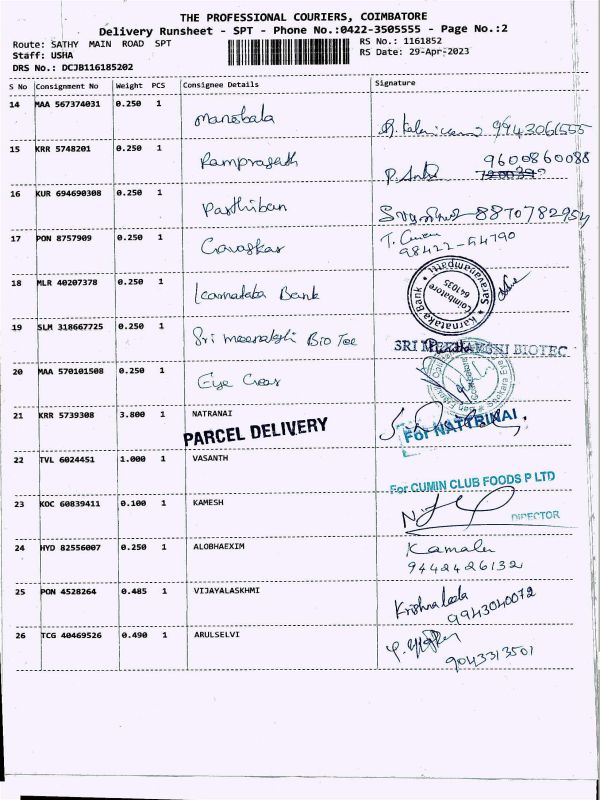 THE PROFESSIONAL COURIERS, COIMBATORE
Delivery Runsheet - SPT - Phone No.:0422-3505555 - Page No.:2
Route: SATHY MAIN ROAD SPT
RS No.: 1161852
Staff: USHA
RS Date: 29-Apr-2023
DRS No.: DCJB116185202
S No Consignment No Weight PCS Consignee Details Signature
14 MAA 567374031 0.250 1 Manobala 9943061555
15 KRR 5748201 0.250 1 Ramprasath 9600860088
16 KUR 694690308 0.250 1 Parthiban 8870782954
17 PON 8757909 0.250 1 Gavaskar
98422-54790
18 MLR 40207378 0.250 1 Karnataka Bank
Karnataka Bank Saravanampatti
Coimbatore
641035
19 SLM 318667725 0.250 1 Sri Meenakshi Bio Tec
SRI MEENAKSHI BIOTEC
20 MAA 570101508 0.250 1 Eye Care
21 KRR 5739308 3.800 1 NATRANAI
PARCEL DELIVERY
For NATTRINAI.
22 TVL 6024451 1.000 1 VASANTH
For CUMIN CLUB FOODS P LTD
23 KOC 60839411 0.100 1 KAMESH
DIRECTOR
24 HYD 82556007 0.250 1 ALOBHAEXIM
9442426132
25 PON 4528264 0.485 1 VIJAYALASKHMI
9943040072
26 TCG 40469526 0.490 1 ARULSELVI
9043313501